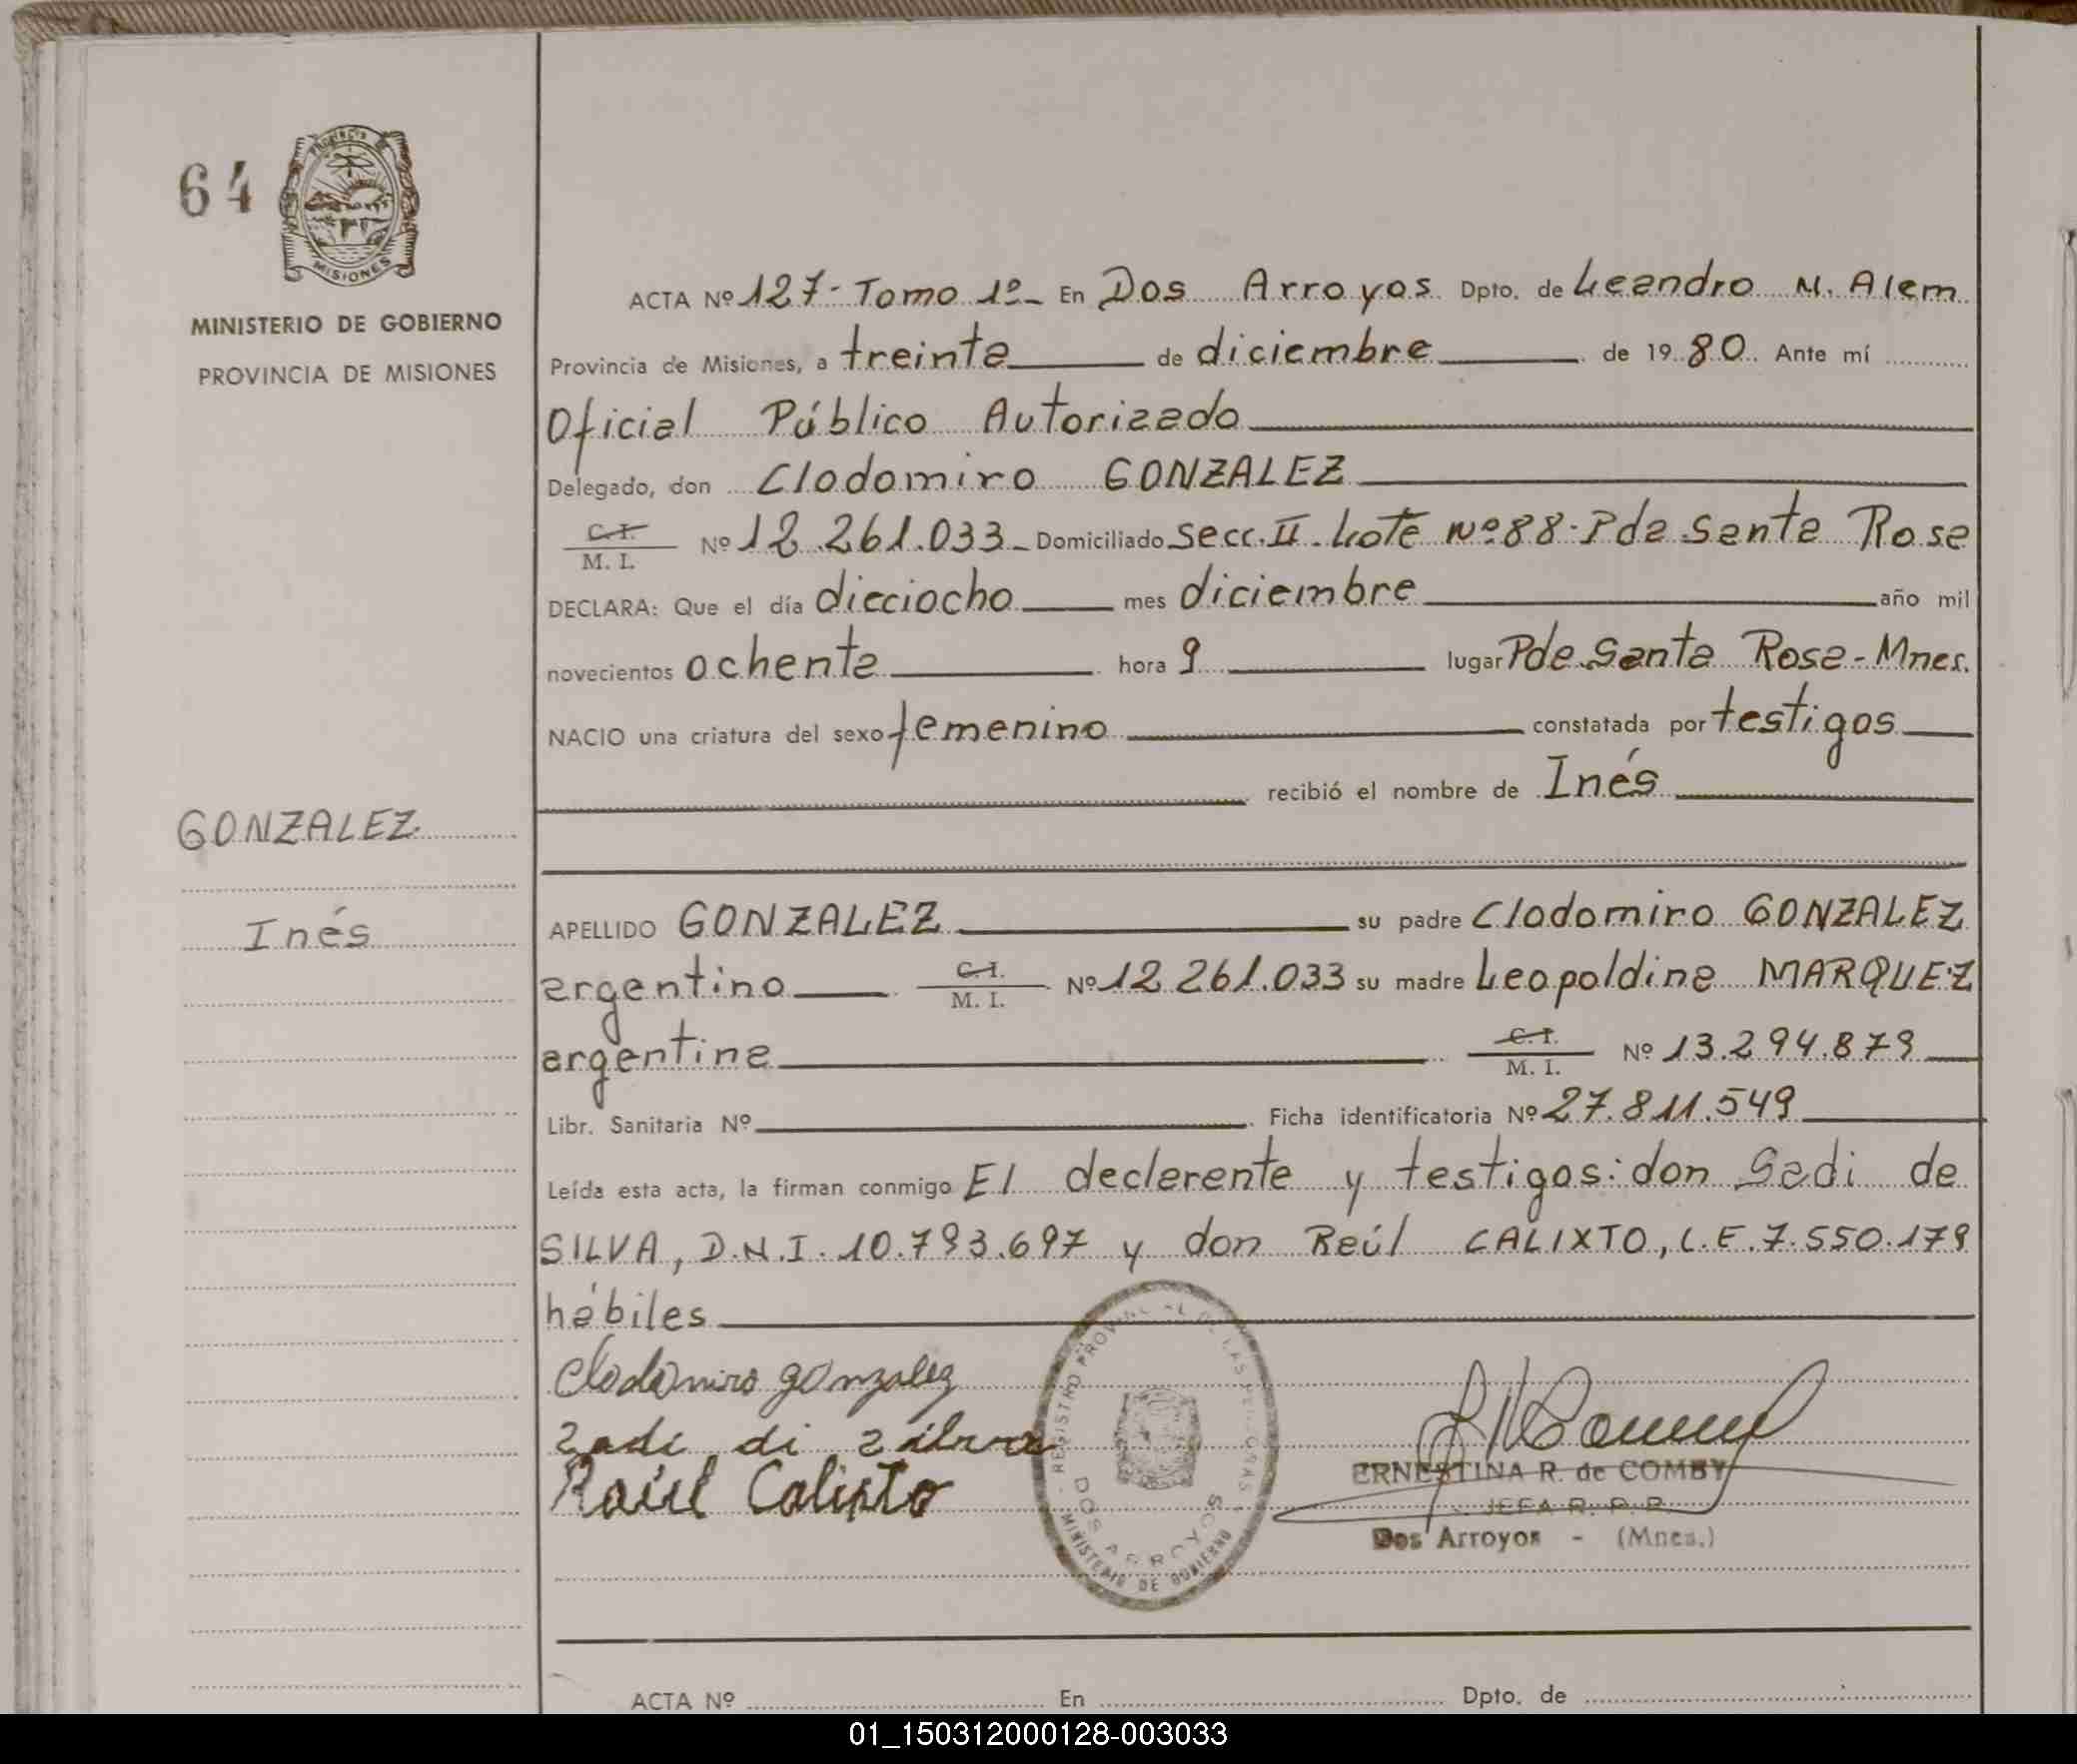 64
Provincia
MISIONES
MINISTERIO DE GOBIERNO
PROVINCIA DE MISIONES
GONZALEZ
Inés
ACTA Nº 127- Tomo 1º- En Dos Arroyos Dpto. de Leandro N. Alem
Provincia de Misiones, a treinta de diciembre de 1980. Ante mí
Oficial Público Autorizado
Delegado, don Clodomiro GONZALEZ
C.I.
M. I. Nº 12.261.033_ Domiciliado Secc. II. Lote Nº 88- Pda Santa Rosa
DECLARA: Que el día dieciocho mes diciembre año mil
novecientos ochenta hora 9 lugar Pda Santa Rosa - Mnes.
NACIO una criatura del sexo femenino constatada por testigos
recibió el nombre de Inés
APELLIDO GONZALEZ su padre Clodomiro GONZALEZ
argentino C.I. M. I. Nº 12.261.033 su madre Leopoldina MARQUEZ
argentina C.I. M. I. Nº 13.294.879
Libr. Sanitaria Nº Ficha identificatoria Nº 27.811.549
Leída esta acta, la firman conmigo El declarante y testigos: don Sadi de
SILVA, D.N.I. 10.793.697 y don Raúl CALIXTO, L.E. 7.550.179
hábiles
Clodomiro gonzalez
Zadi di zilva
Raúl Calixto
REGISTRO PROVINCIAL DE LAS PERSONAS
DOS ARROYOS
MINISTERIO DE GOBIERNO
ERNESTINA R. de COMBY
JEFA R. P. P.
Dos Arroyos - (Mnes.)
ACTA Nº En Dpto. de
01_150312000128-003033